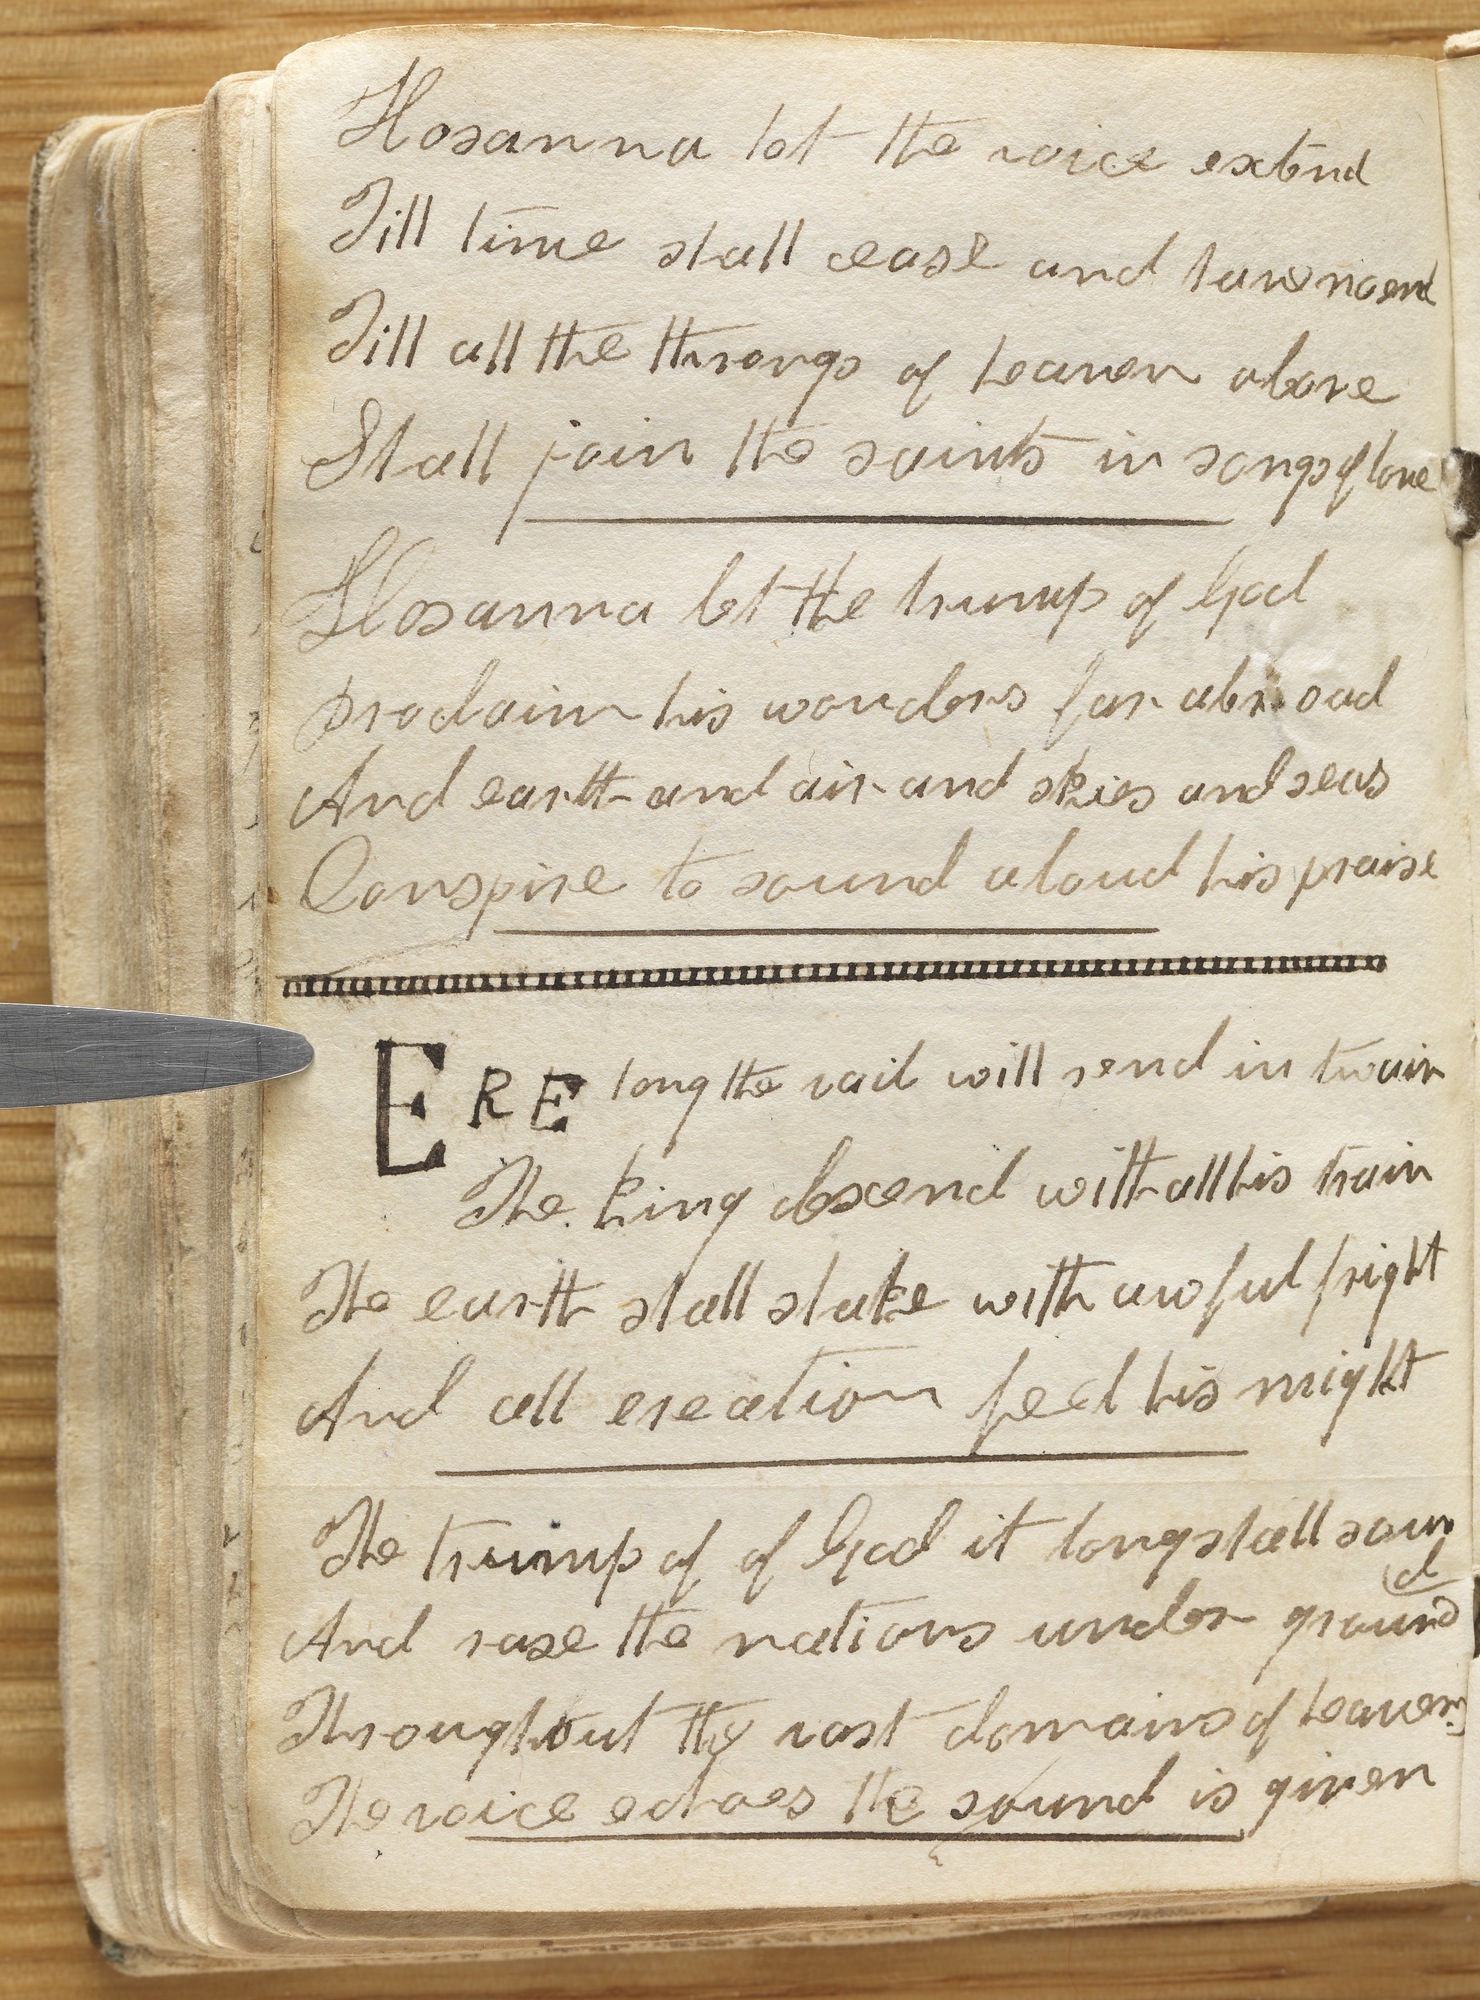 Hosanna let the voice extend
Till time shall cease and have no end
Till all the throngs of heaven above
Shall join the saints in songs of love
Hosanna let the trump of God
proclaim his wonders far abroad
And earth and air and skies and seas
Conspire to sound aloud his praise
ERE long the vail will rend in twain
The king descend with all his train
The earth shall shake with awful fright
And all creation feel his might
The trump of of God it long shall soun
d
And rase the nations under ground
Throughout the vast domains of heaven
The voice echoes the sound is given